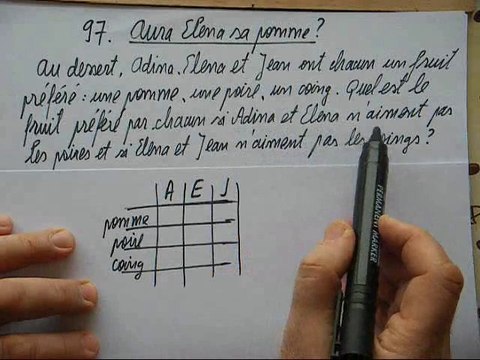 97. Aura Elena sa pomme?
Au dessert, Adina, Elena et Jean ont chacun un fruit
préféré: une pomme, une poire, un coing. Quel est le
fruit préféré par chacun si Adina et Elena n'aiment pas
les poires et si Elena et Jean n'aiment pas les coings?
A E J
pomme
poire
coing
PERMANENT MARKER